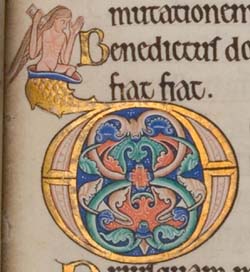 mutationem
Benedictus do
fiat fiat.